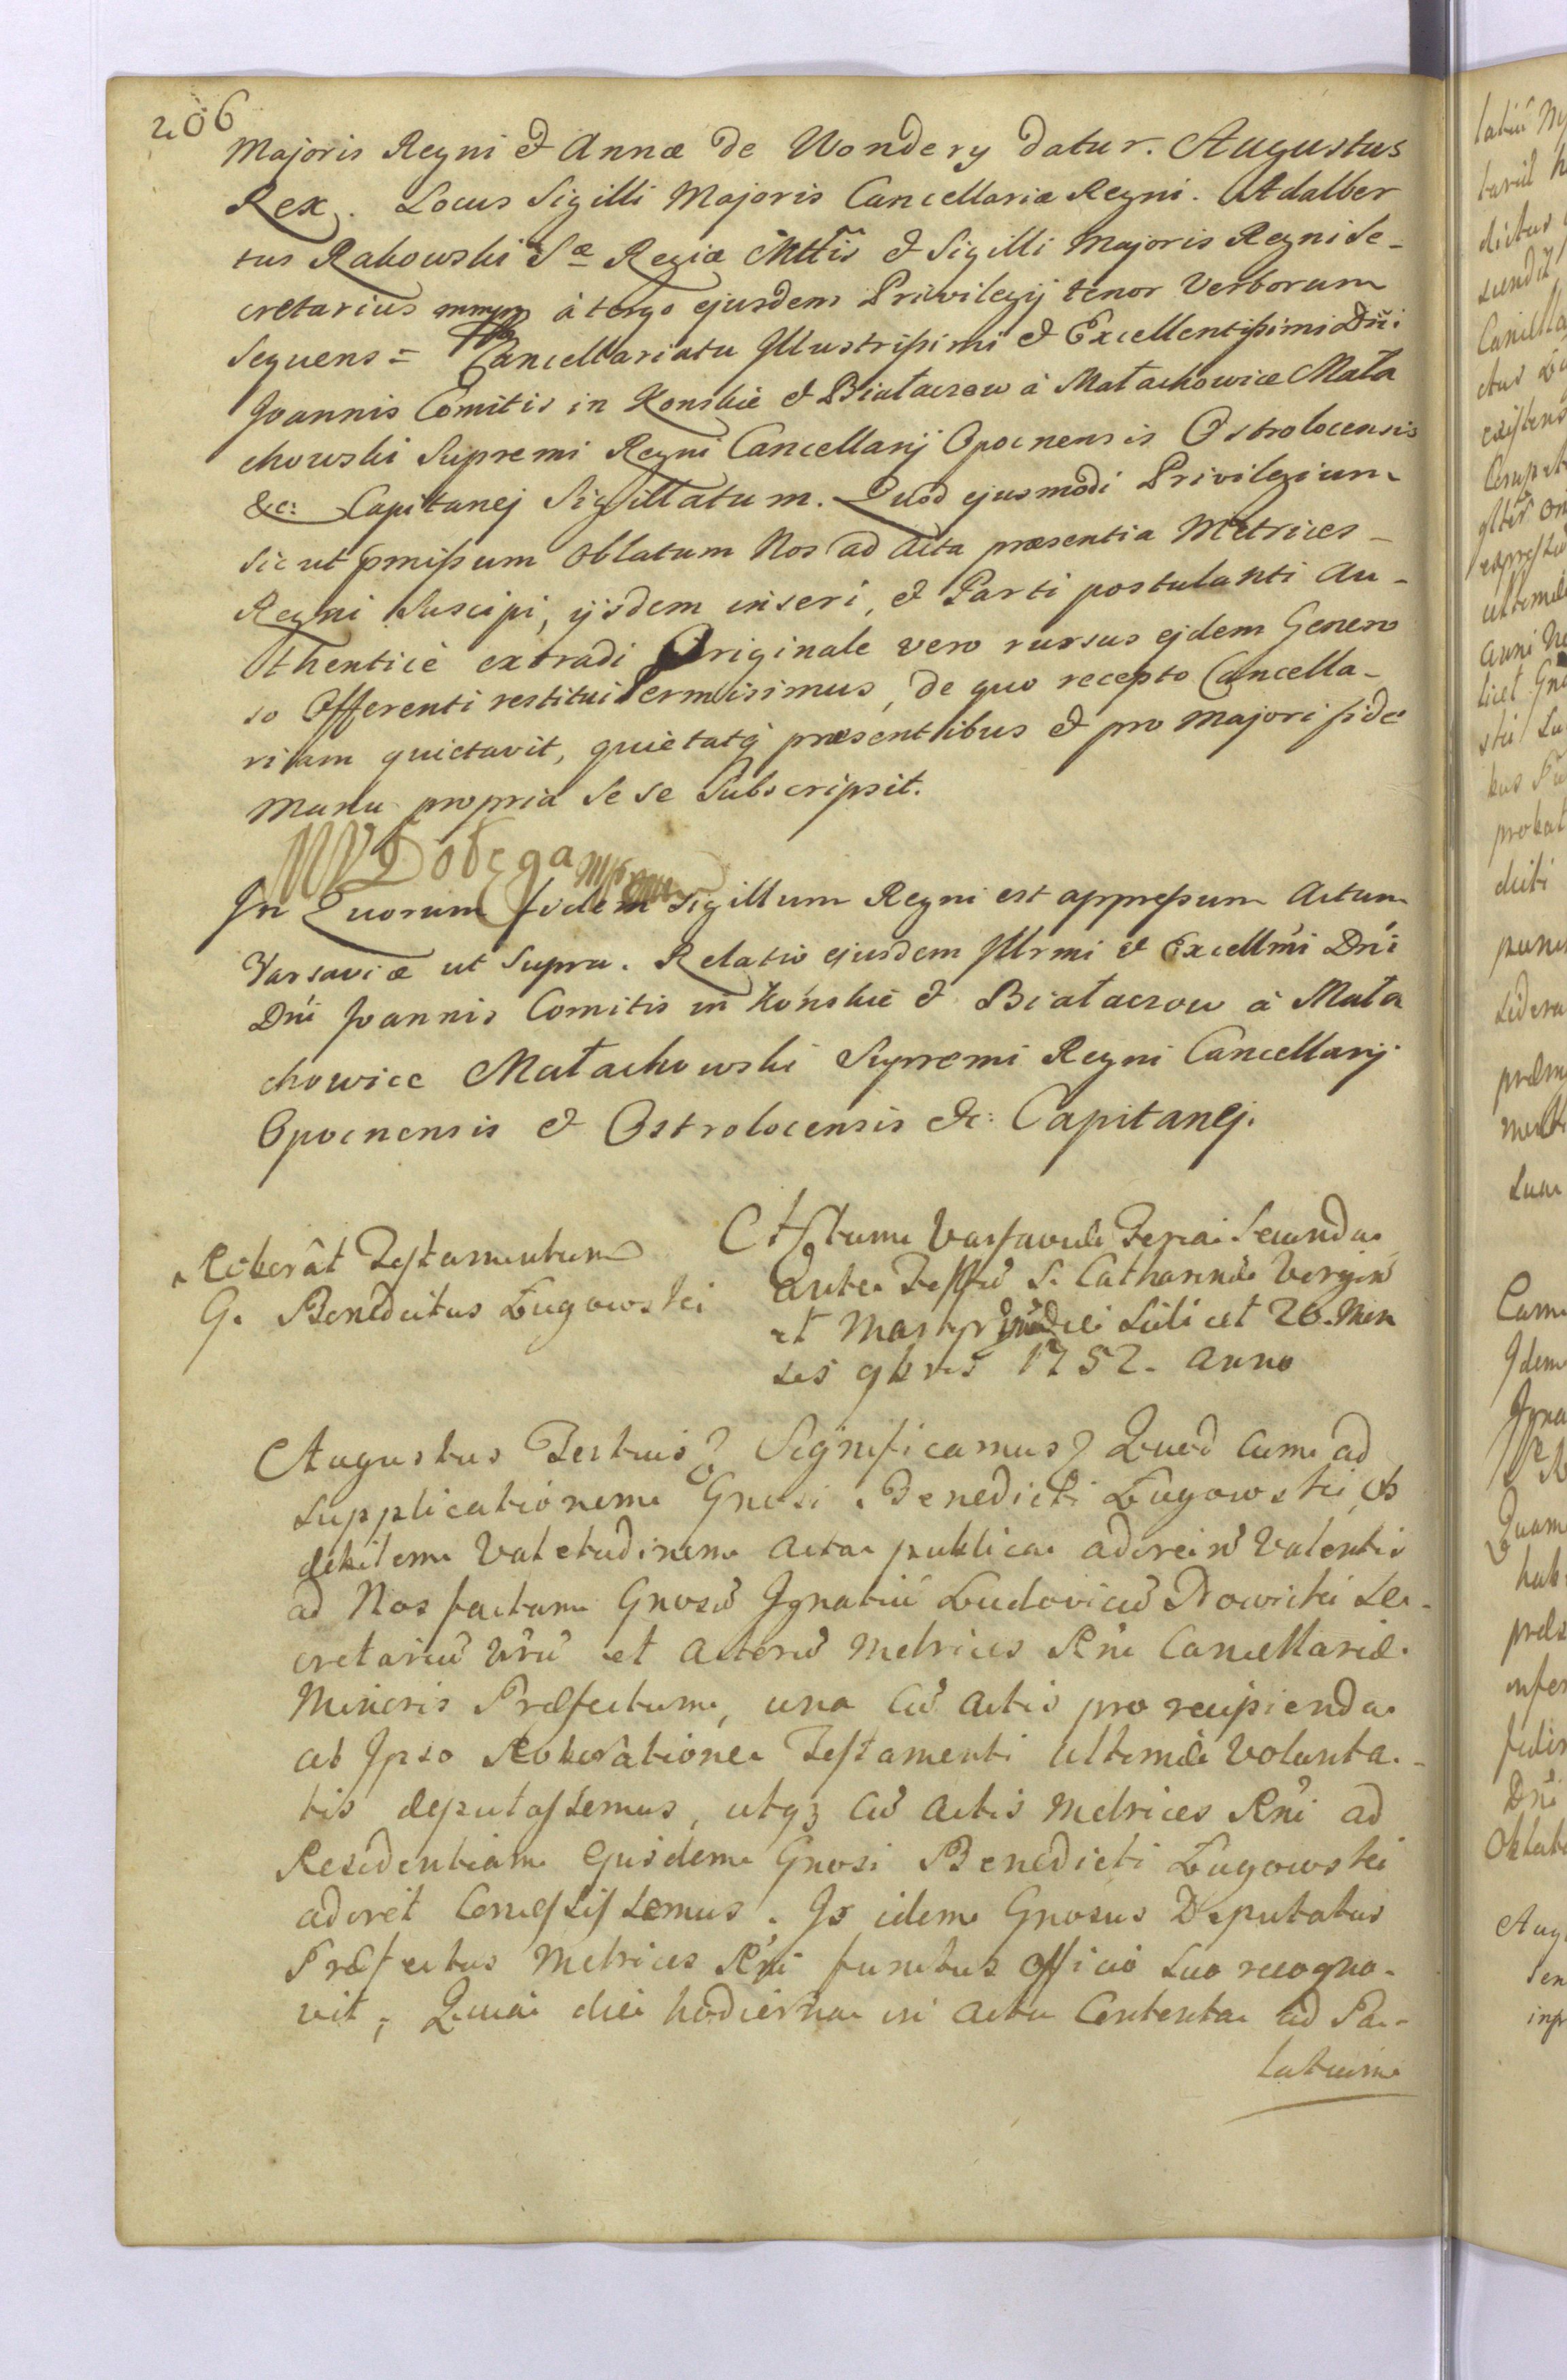 206
Majoris Regni & Annæ de Wondery datur. Augustus
Rex. Locus Sigilli Majoris Cancellariæ Regni. Adalber
tus Rakowski Sæ Regiæ Mttis & Sigilli Majoris Regni Se-
cretarius mmpp à tergo ejusdem Privilegij tenor Verborum
Sequens = Cancellariatu Jllustrissimi & Excellentissimi Dñi
Joannis Comitis in Konskie & Białaczow à Małachowice Mała
chowski Supremi Regni Cancellarij Opocnensis Ostrolocensis
&c: Capitanej Sigillatum. Quod ejusmodi Privilegium
sicut pmissum Oblatum Nos ad Acta præsentia Metrices
Regni Suscipi, ijsdem inseri, & Parti postulanti Au-
thenticè extradi Originale vero rursus ejdem Genero
so Offerenti restitui Permisimus, de quo recepto Cancella-
riam quietavit, quietatq præsentibus & pro majori fide
manu propria Se se Subscripsit.
In Quorum fidem Sigillum Regni est appressum Actum
Varsaviæ ut Supra. Relatio ejusdem Jllrmi & Excellmi Dni
Dni Joannis Comitis in Końskie & Białaczow à Mała
chowice Małachowski Supremi Regni Cancellarij
Opocnensis & Ostrolocensis &c: Capitanej.
Roborat Testamentum
G. Benedictus Ługowski
Actum Varsaviæ Feria Secunda
Ante Festũ S. Catharinæ Virgin
et Martyr die Scilicet 20. Men
sis 9bris 1752. Anno
Augustus Tertius Significamus Quod cum ad
supplicationem Gnosi Benedicti Ługowski, ob
debilem Valetudinem acta publica adire ñ Valentis
ad Nos factam Gnosũ Jgnatiũ Ludovicũ Nowicki Se-
cretariũ Nrũ et Actorũ Metrices Rni Cancellariæ
Minoris Præfectum, una cũ Actis pro recipienda
ab Jpso Roboratione Testamenti ultimæ Volunta-
tis deputassemus, utqz cũ Actis Metrices Rni ad
Residentiam Ejusdem Gnosi Benedicti Ługowski
adiret Concessissemus. Js idem Gnosus Deputatus
Præfectus Metrices Rni functus officio suo recogno-
vit; Quia die hodierna in Actu Contenta ad Pa-
latium